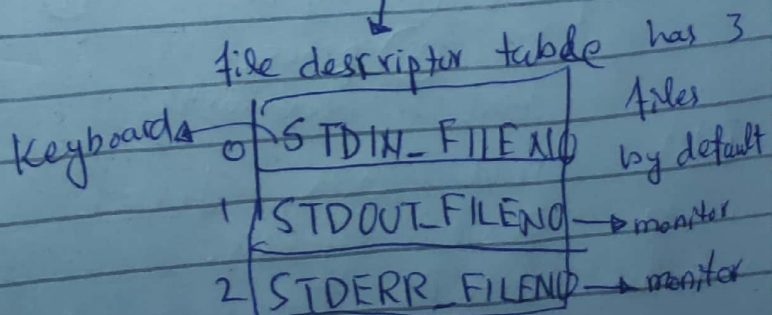 file descriptor table has 3
files
by default
Keyboard
0 STDIN_FILENO
1 STDOUT_FILENO → monitor
2 STDERR_FILENO → monitor